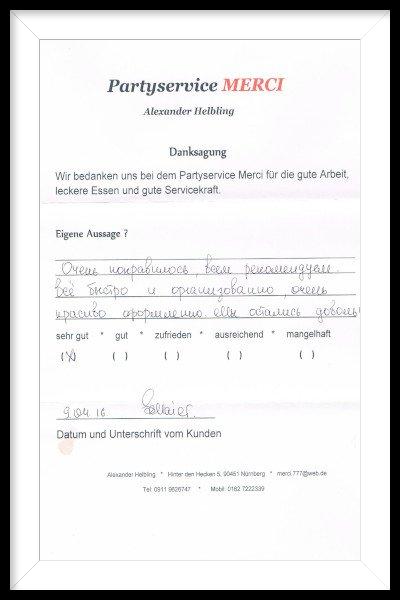 Partyservice MERCI
Alexander Helbling
Danksagung
Wir bedanken uns bei dem Partyservice Merci für die gute Arbeit,
leckere Essen und gute Servicekraft.
Eigene Aussage ?
Очень понравилось, всем рекомендуем.
Всё быстро и организованно, очень
красиво оформленно. Мы остались довольны
sehr gut * gut * zufrieden * ausreichend * mangelhaft
(X) ( ) ( ) ( ) ( )
9.04.16
Datum und Unterschrift vom Kunden
Alexander Helbling * Hinter den Hecken 5, 90451 Nürnberg * merci.777@web.de
Tel: 0911 9626747 * Mobil: 0162 7222339